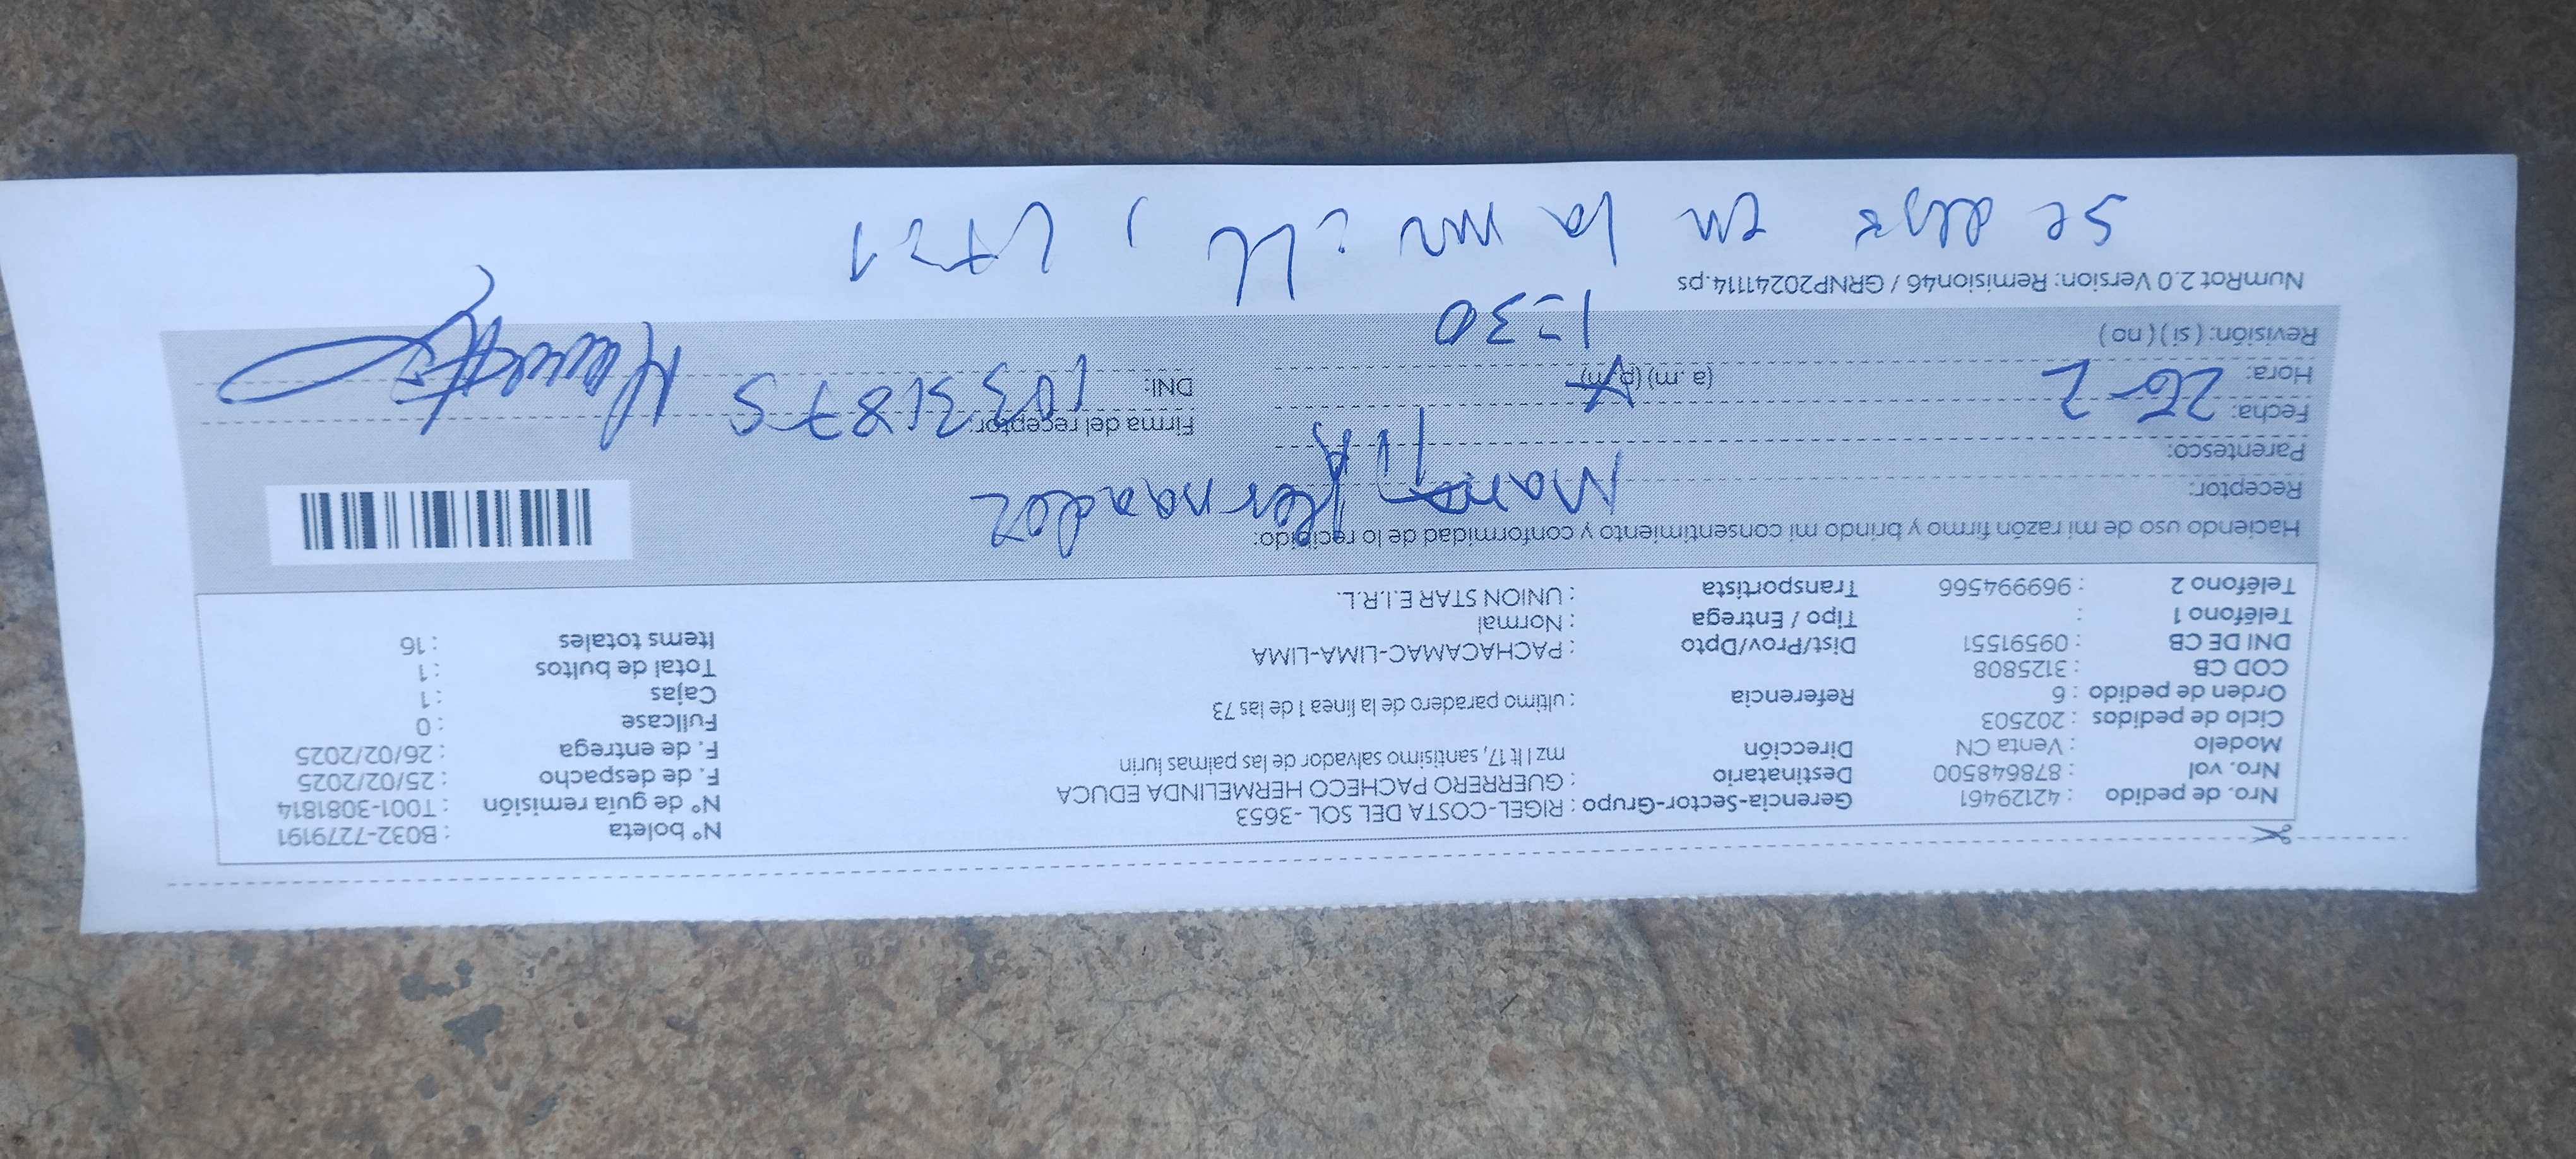 Nº boleta : B032-7279191
Nº de guía remisión : T001-3081814
F. de despacho : 25/02/2025
F. de entrega : 26/02/2025
Fullcase : 0
Cajas : 1
Total de bultos : 1
Items totales : 16
Gerencia-Sector-Grupo : RIGEL-COSTA DEL SOL -3653
Destinatario : GUERRERO PACHECO HERMELINDA EDUCA
Dirección mz I lt 17, santisimo salvador de las palmas lurin
Referencia : ultimo paradero de la linea 1 de las 73
Dist/Prov/Dpto : PACHACAMAC-LIMA-LIMA
Tipo / Entrega : Normal
Transportista : UNION STAR E.I.R.L.
Nro. de pedido : 42129461
Nro. vol : 878648500
Modelo : Venta CN
Ciclo de pedidos : 202503
Orden de pedido : 6
COD CB : 3125808
DNI DE CB : 09591551
Teléfono 1 :
Teléfono 2 : 969994566
Haciendo uso de mi razón firmo y brindo mi consentimiento y conformidad de lo recibido:
Receptor: Hernandez
Parentesco:
Fecha: 26-2
Hora: (a .m) (p. m)
1:30
Revisión: ( si ) ( no )
Firma del receptor:
DNI:
NumRot 2.0 Version: Remision46 / GRNP20241114.ps
se en la